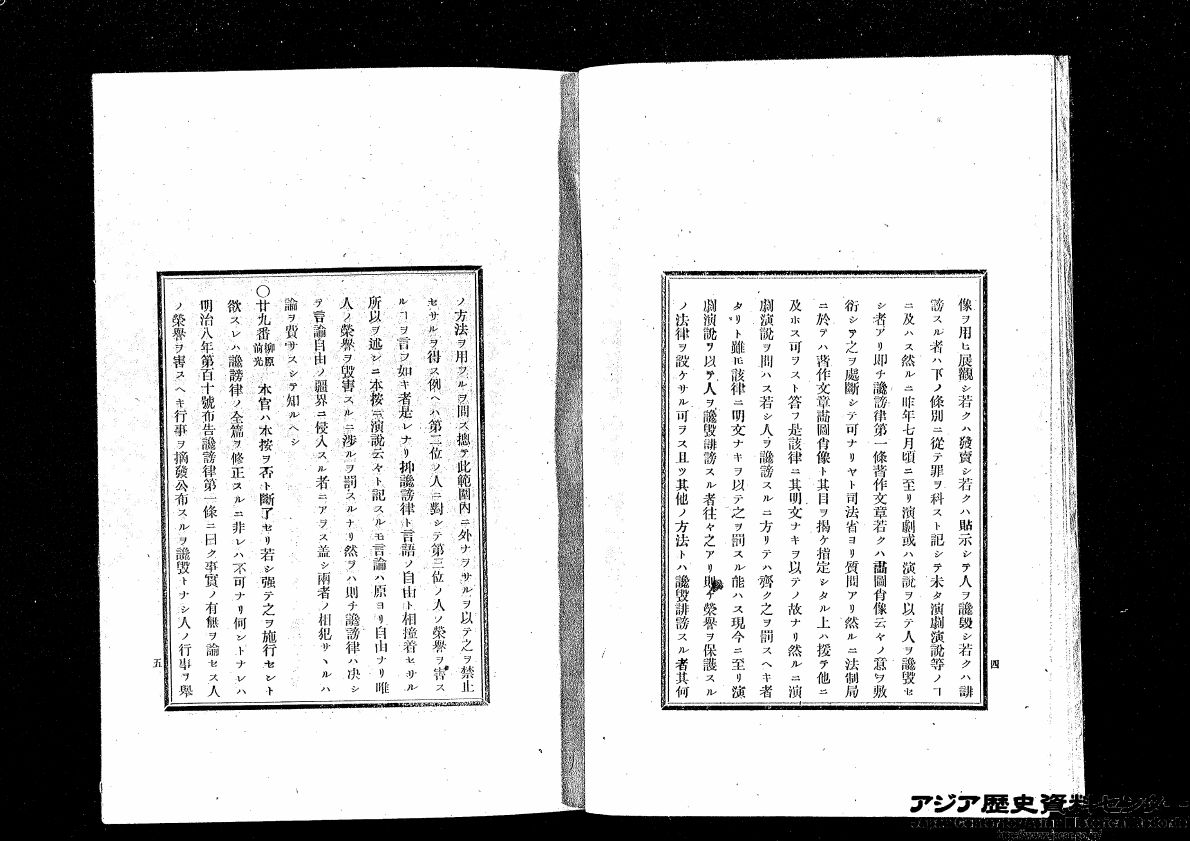 像ヲ用ヒ展觀シ若クハ發賣シ若クハ貼示シテ人ヲ讒毀シ若クハ誹
謗スル者ハ下ノ條別ニ從テ罪ヲ科スト記シテ未タ演劇演說等ノヿ
ニ及ハス然ルニ昨年七月頃ニ至リ演劇或ハ演說ヲ以テ人ヲ讒毀セ
シ者アリ即チ讒謗律第一條著作文章若クハ畵圖肖像云々ノ意ヲ敷
衍シテ之ヲ處斷シテ可ナリヤト司法省ヨリ質問アリ然ルニ法制局
ニ於テハ著作文章畵圖肖像ト其目ヲ揭ケ指定シタル上ハ援テ他ニ
及ホス可ラスト答フ是該律ニ其明文ナキヲ以テノ故ナリ然ルニ演
劇演說ヲ問ハス若シ人ヲ讒謗スルニ方リテハ齊ク之ヲ罰スヘキ者
タリト雖𪜈該律ニ明文ナキヲ以テ之ヲ罰スル能ハス現今ニ至リ演
劇演說ヲ以テ人ヲ讒毀誹謗スル者往々之アリ則チ榮譽ヲ保護スル
ノ法律ヲ設ケサル可ラス且ツ其他ノ方法トハ讒毀誹謗スル者其何
四
ノ方法ヲ用フルヲ問ス摠テ此範圍內ニ外ナラサルヲ以テ之ヲ禁止
セサルヲ得ス例ヘハ第二位ノ人ニ對シテ第三位ノ人ノ榮譽ヲ害ス
ルヿヲ言フ如キ者是レナリ抑讒謗律ト言語ノ自由ト相撞着セサル
所以ヲ述シニ本按ニ演說云々ト記スルモ言論ハ原ヨリ自由ナリ唯
人ノ榮譽ヲ毀害スルニ涉ルヲ罰スルナリ然ラハ則チ讒謗律ハ决シ
テ言論自由ノ疆界ニ侵入スル者ニアラス盖シ兩者ノ相犯サヽルハ
論ヲ費サスシテ知ルヘシ
〇廿九番柳原前光 本官ハ本按ヲ否ト斷了セリ若シ强テ之ヲ施行セント
欲スレハ讒謗律ノ全篇ヲ修正スルニ非レハ不可ナリ何シトナレハ
明治八年第百十號布告讒謗律第一條ニ曰ク事實ノ有無ヲ論セス人
ノ榮譽ヲ害スヘキ行事ヲ摘發公布スルヲ讒毀トナシ人ノ行事ヲ擧
五
アジア歴史資料センター
Japan Center for Asian Historical Records
http://www.jacar.go.jp/